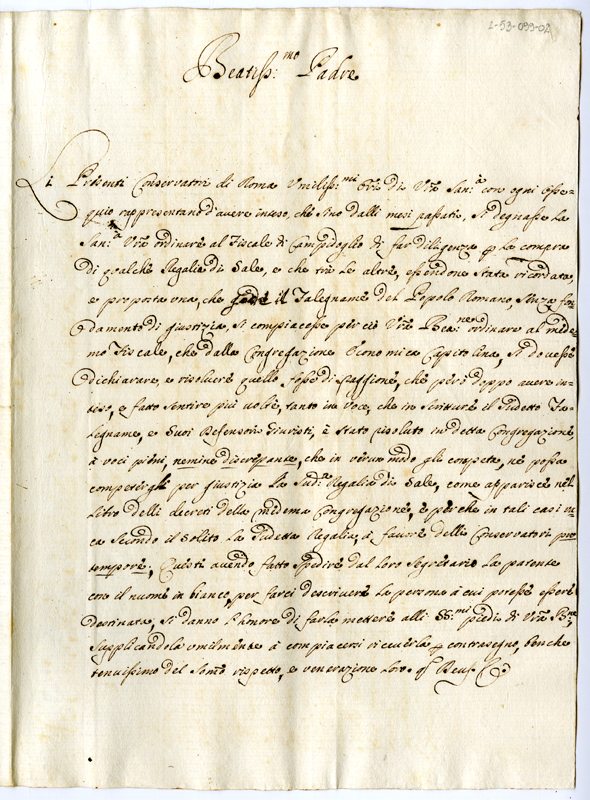 1-53-099-02
Beatiss:mo Padre
Li Presenti Conservatori di Roma Umiliss:mi di Vra San:a con ogni osse-
quio rappresentano d'avere inteso, che sino dalli mesi passati, si degnasse la
San:a Vra ordinare al Fiscale di Campidoglio di far diligenza p la compra
di qualche Regalia di Sale, e che trà le altre, essendone stata ricordata,
e proposta una, che gode il Falegname del Popolo Romano, senza fon-
damento di giustizia, si compiacesse per ciò Vra Bea:ne ordinare al mede-
mo Fiscale, che dalla Congregazione Economica Capitolina, si dovesse
dichiarare, e risolvere quello fosse di raggione, che però doppo avere in-
teso, e fatto sentire più volte, tanto in voce, che in scritture il sudetto Fa-
legname, e suoi Defensori Giuristi, è stato risoluto in detta Congregazione,
à voci pieni, nemine discrepante, che in verun modo gli competa, ne possa
competergli per giustizia la sud:a Regalia di Sale, come apparisce nel
libro delli decreti della medema Congregazione, e perche in tali casi va-
ca secondo il solito la sudetta Regalia, à favore delli Conservatori pro
tempore, Questi avendo fatto spedire dal loro Segretario la patente
con il nome in bianco, per farci descrivere la persona à cui potesse essere
destinata, si danno l'honore di farla mettere alli SS:mi piedi di Vra Bne,
supplicandola umilmente à compiacersi riceverla p contrasegno, benche
tenuissimo del Somo rispetto, e venerazione loro.